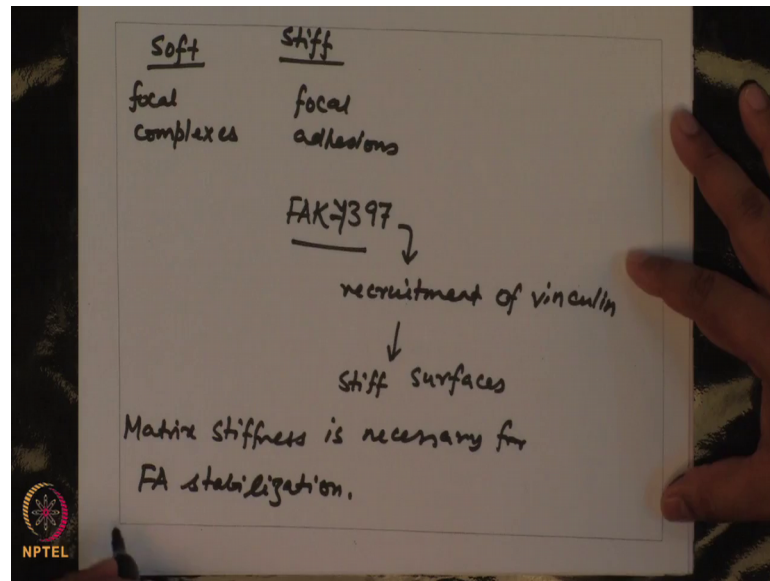 Soft Stiff
focal focal
complexes adhesions
FAK-Y397
recruitment of vinculin
stiff surfaces
Matrix stiffness is necessary for
FA stabilization.
NPTEL